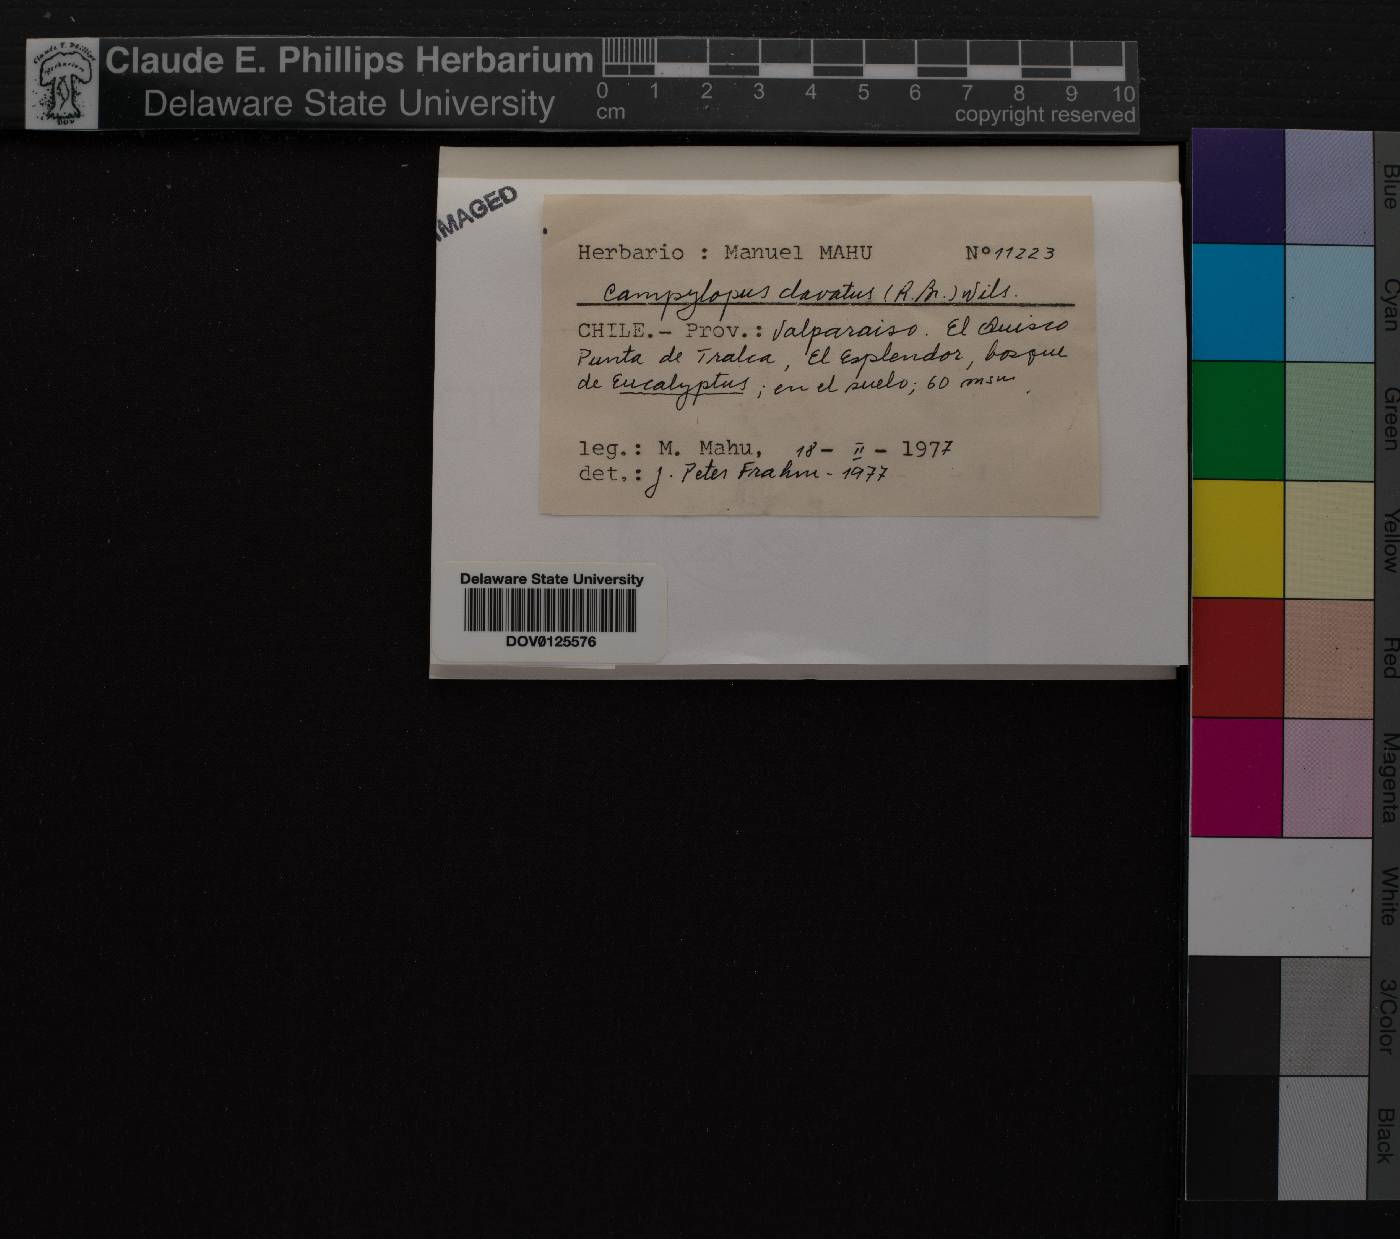 Claude E. Phillips Herbarium
Delaware State University
0 1 2 3 4 5 6 7 8 9 10
cm
copyright reserved
IMAGED
Herbario : Manuel MAHU Nº 11223
Campylopus clavatus (R. Br.) Wils.
CHILE.- Prov.: Valparaiso. El Quisco
Punta de Tralca, El Esplendor, bosque
de Eucalyptus; en el suelo; 60 msm.
leg.: M. Mahu, 18 - II - 1977
det.: J. Peter Frahm - 1977
Delaware State University
DOV0125576
Blue
Cyan
Green
Yellow
Red
Magenta
White
3/Color
Black